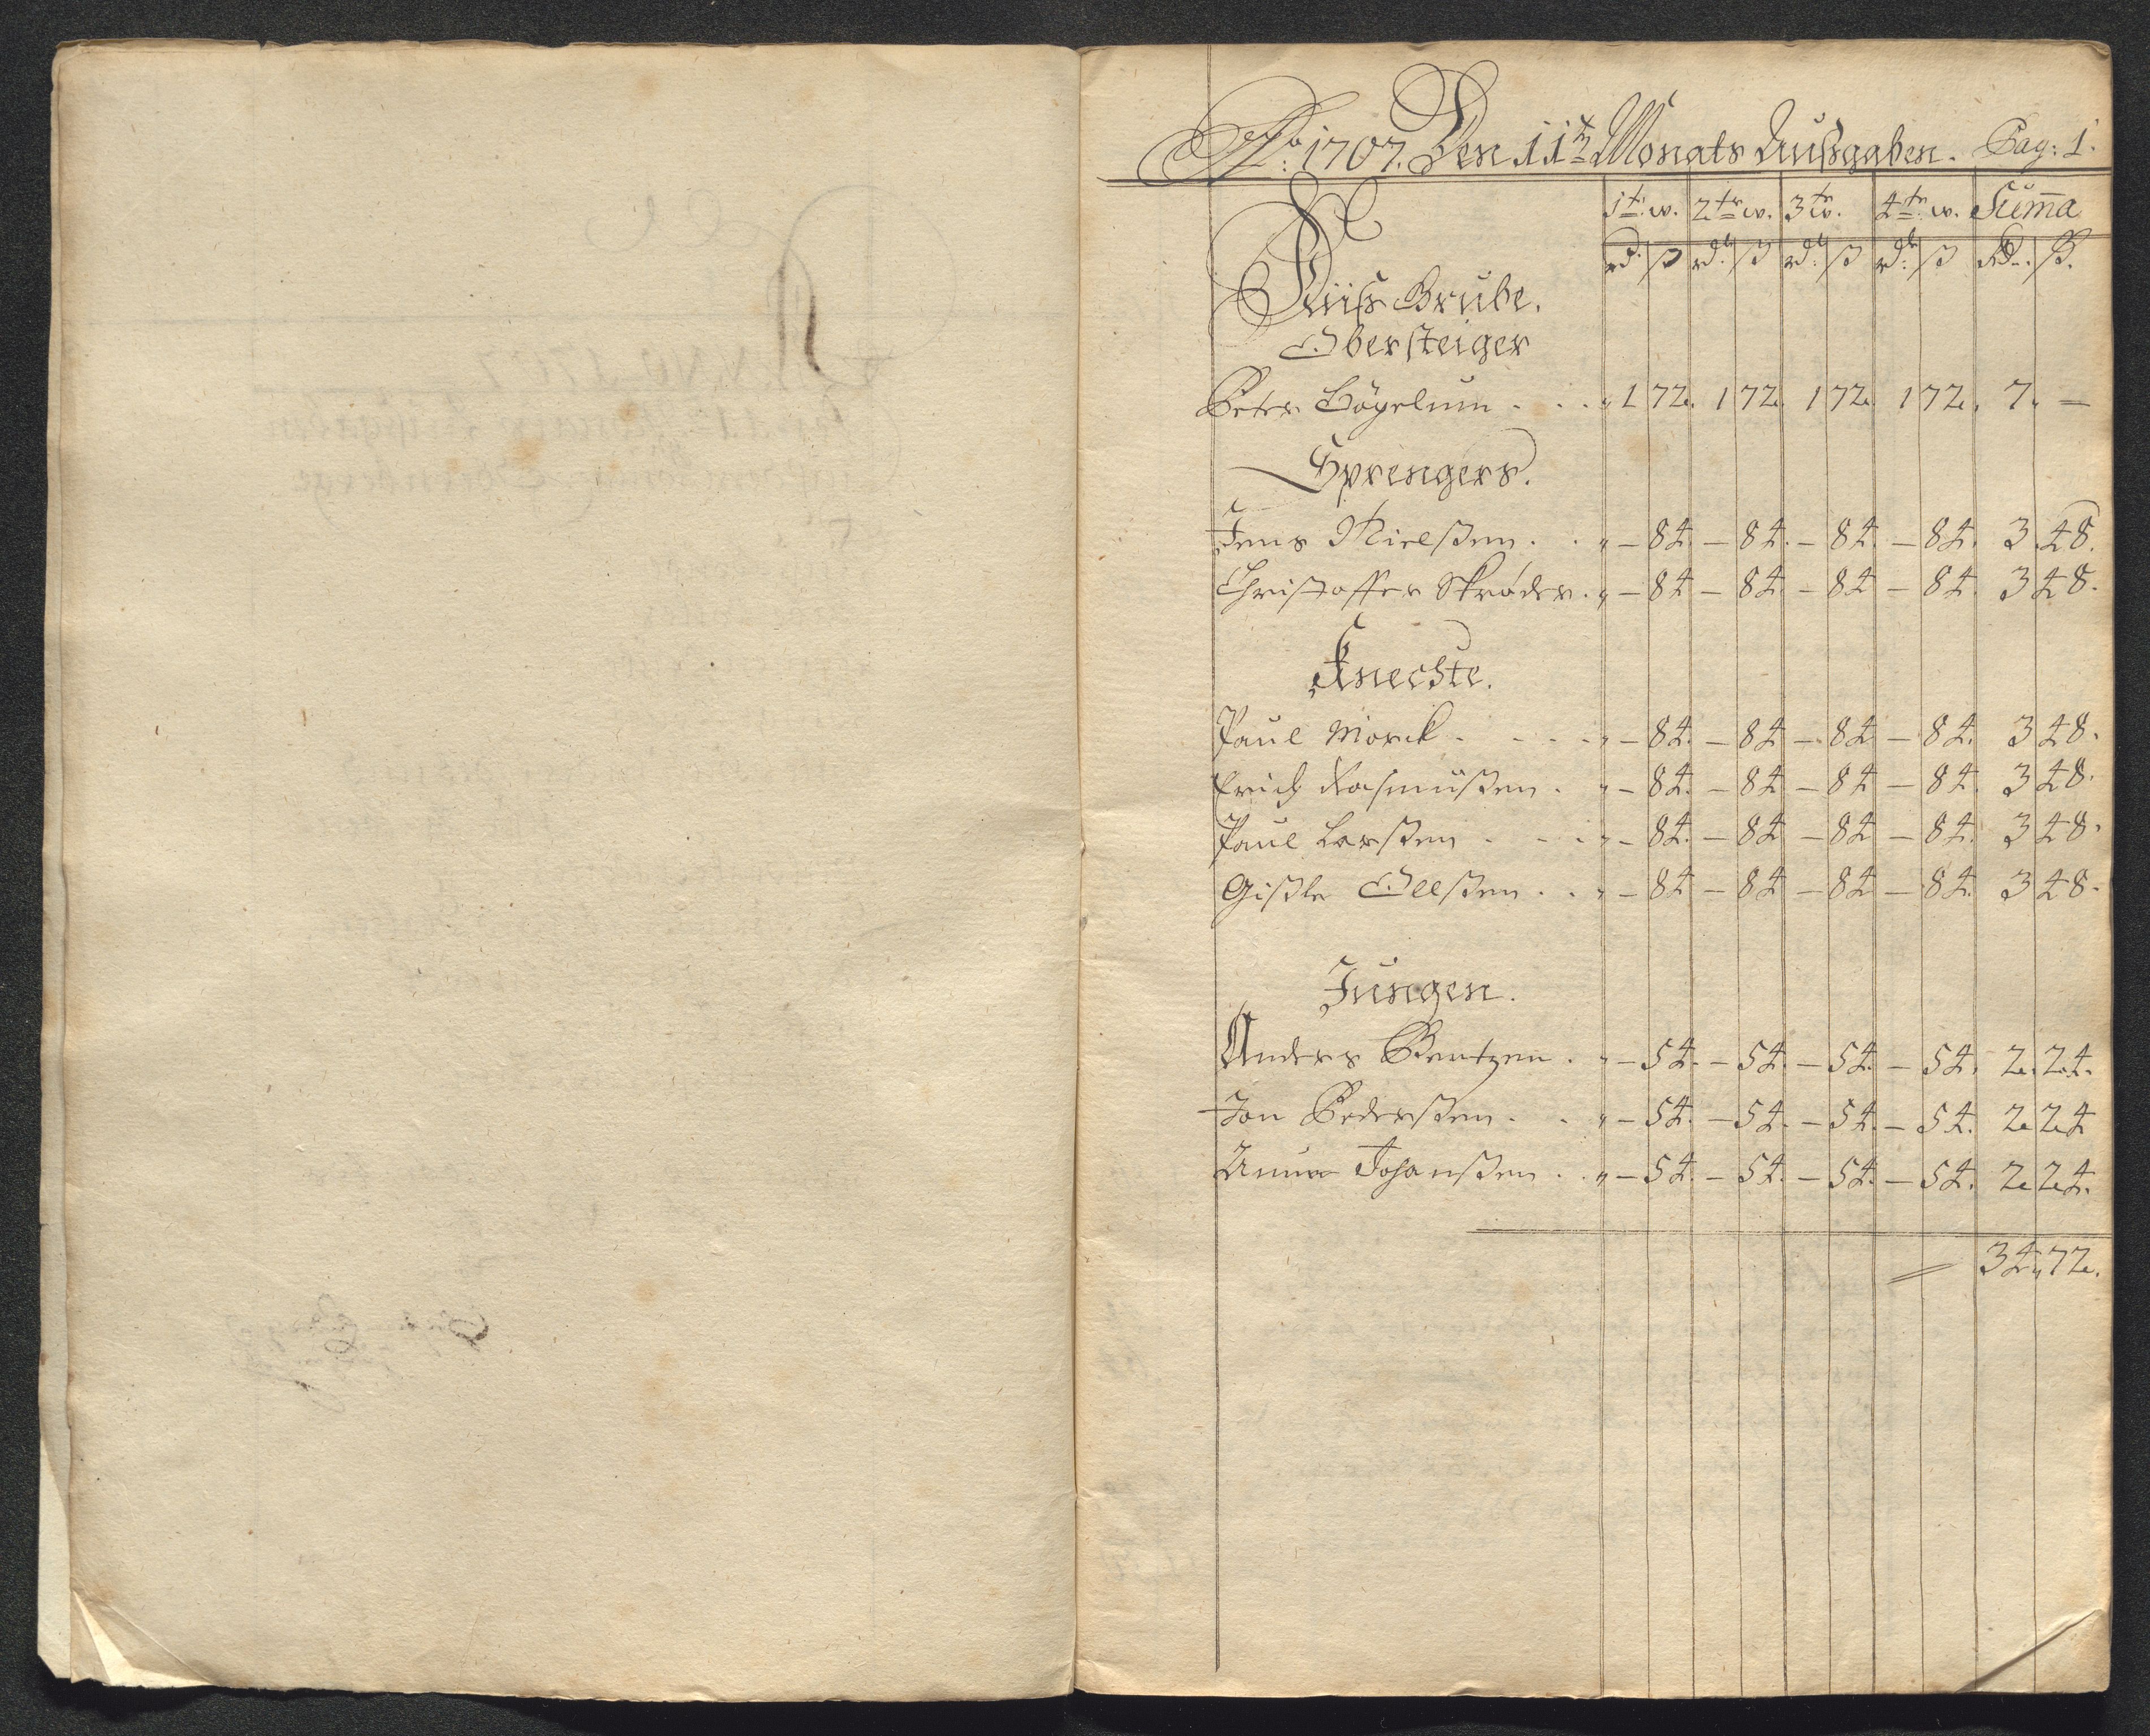 Ao: 1707. Den 11tn Monats Außgaben. Pag: 1.
1t. w. 2tr w. 3tr w. 4tr w. Suma
rd. ß rd. ß rd. ß rd. ß Rd. ß.
Grube.
Obersteiger
Peter Bögelum . . . 1 72. 1 72. 1 72. 1 72. 7. —
Sprengers.
Jens Nielßen . . — 84. — 84. — 84. — 84. 3 48.
Christoffer Skrøder . — 84 — 84 — 84 — 84. 3 48.
Knechte.
Paul Morck . . . . — 84. — 84 — 84 — 84. 3 48.
Erich Rasmußen . — 84. — 84 — 84 — 84. 3 48.
Paul Larßen . . . — 84. — 84 — 84 — 84. 3 48.
Gißle Ollßen . . — 84 — 84 — 84 — 84. 3 48.
Jungen.
Anders Bentzen . — 54. — 54. — 54. — 54. 2. 24.
Jon Pederßen . . — 54. — 54. — 54. — 54. 2 24
Johanßen . . — 54. — 54. — 54. — 54. 2 24.
34 72.